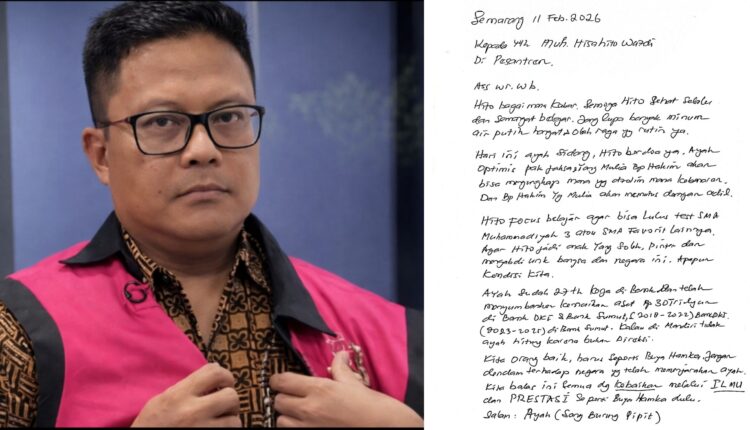 Semarang 11 Feb. 2026
Kepada Yth Muh. Hisahito Wardi
Di Pesantren.
Ass wr. wb.
Hito bagaimana kabar. Semoga Hito Sehat Selalu
dan Semangat belajar. Jang lupa banyak minum
air putih hangat & Olah raga yg rutin ya.
Hari ini ayah Sidang, Hito berdoa ya. Ayah
Optimis pak Jaksa, Yang Mulia Bp Hakim akan
bisa mengungkap mana yg dzolim mana Kebenaran.
Dan Bp Hakim Yg Mulia akan memutus dengan adil.
Hito Focus belajar agar bisa Lulus test SMA
Muhammadiyah 3 atau SMA Favorit lainnya.
Agar Hito jadi anak Yang Soleh, Pintar dan
mengabdi untk bangsa dan negara ini. Apapun
Kondisi Kita.
Ayah Sudah 27 th Kerja di Bank dan telah
menyumbangkan kenaikan aset Rp 30 Triliyun
di Bank DKI & Bank Sumut, (2018-2022) Bank DKI.
(2023-2025) di Bank Sumut. Kalau di Mandiri tidak
ayah hitung karena bukan Direksi.
Kita Orang baik, harus seperti Buya Hamka, Jangan
dendam terhadap negara yg telah memenjarakan ayah.
Kita balas ini Semua dg Kebaikan melalui ILMU
dan PRESTASI Seperti Buya Hamka dulu.
Salam : Ayah (Sang Burung Pipit)